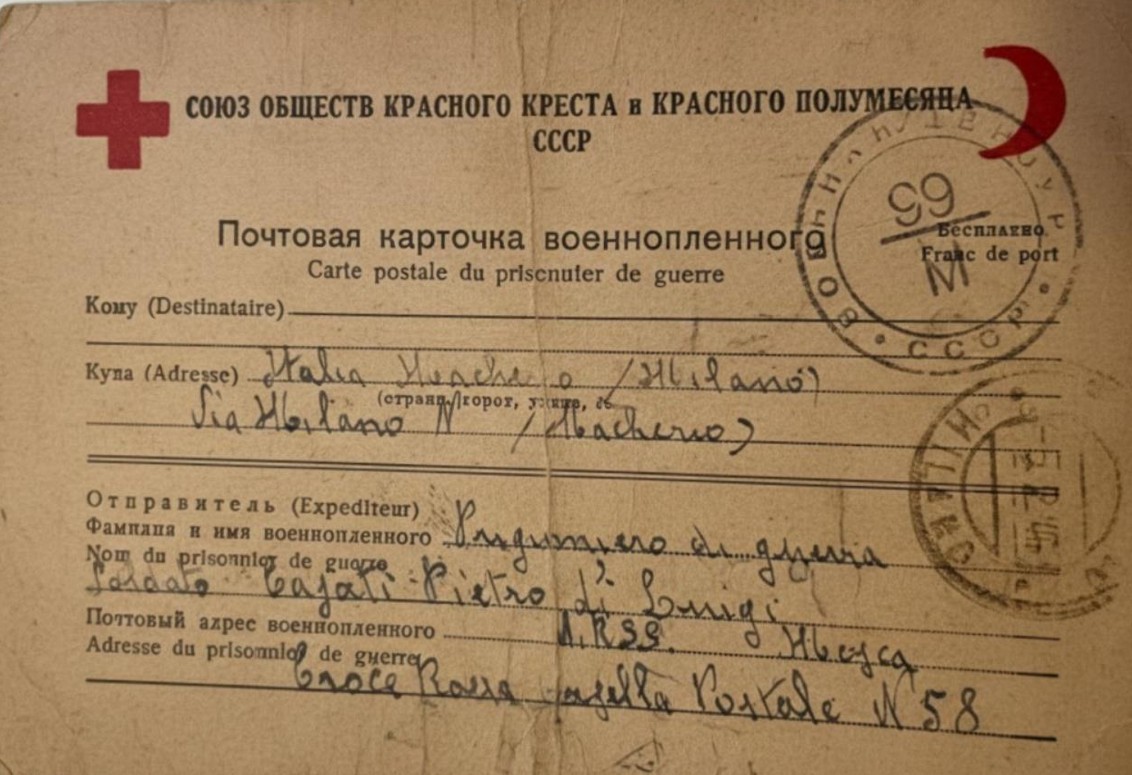 СОЮЗ ОБЩЕСТВ КРАСНОГО КРЕСТА и КРАСНОГО ПОЛУМЕСЯЦА
СССР
99
М
Бесплатно
Franc de port
Почтовая карточка военнопленного
Carte postale du priscnuier de guerre
Кому (Destinataire)
Куда (Adresse) Italia Macherio (Milano)
Via Milano N (Macherio)
СССР
Отправитель (Expediteur)
Фамилия и имя военнопленного Prigioniero di guerra
Nom du prisonnier de guerre
Soldato Cajati Pietro di Luigi
Почтовый адрес военнопленного U.RSS. Mosca
Adresse du prisonnier de guerre
Croce Rossa Casella Postale N 58